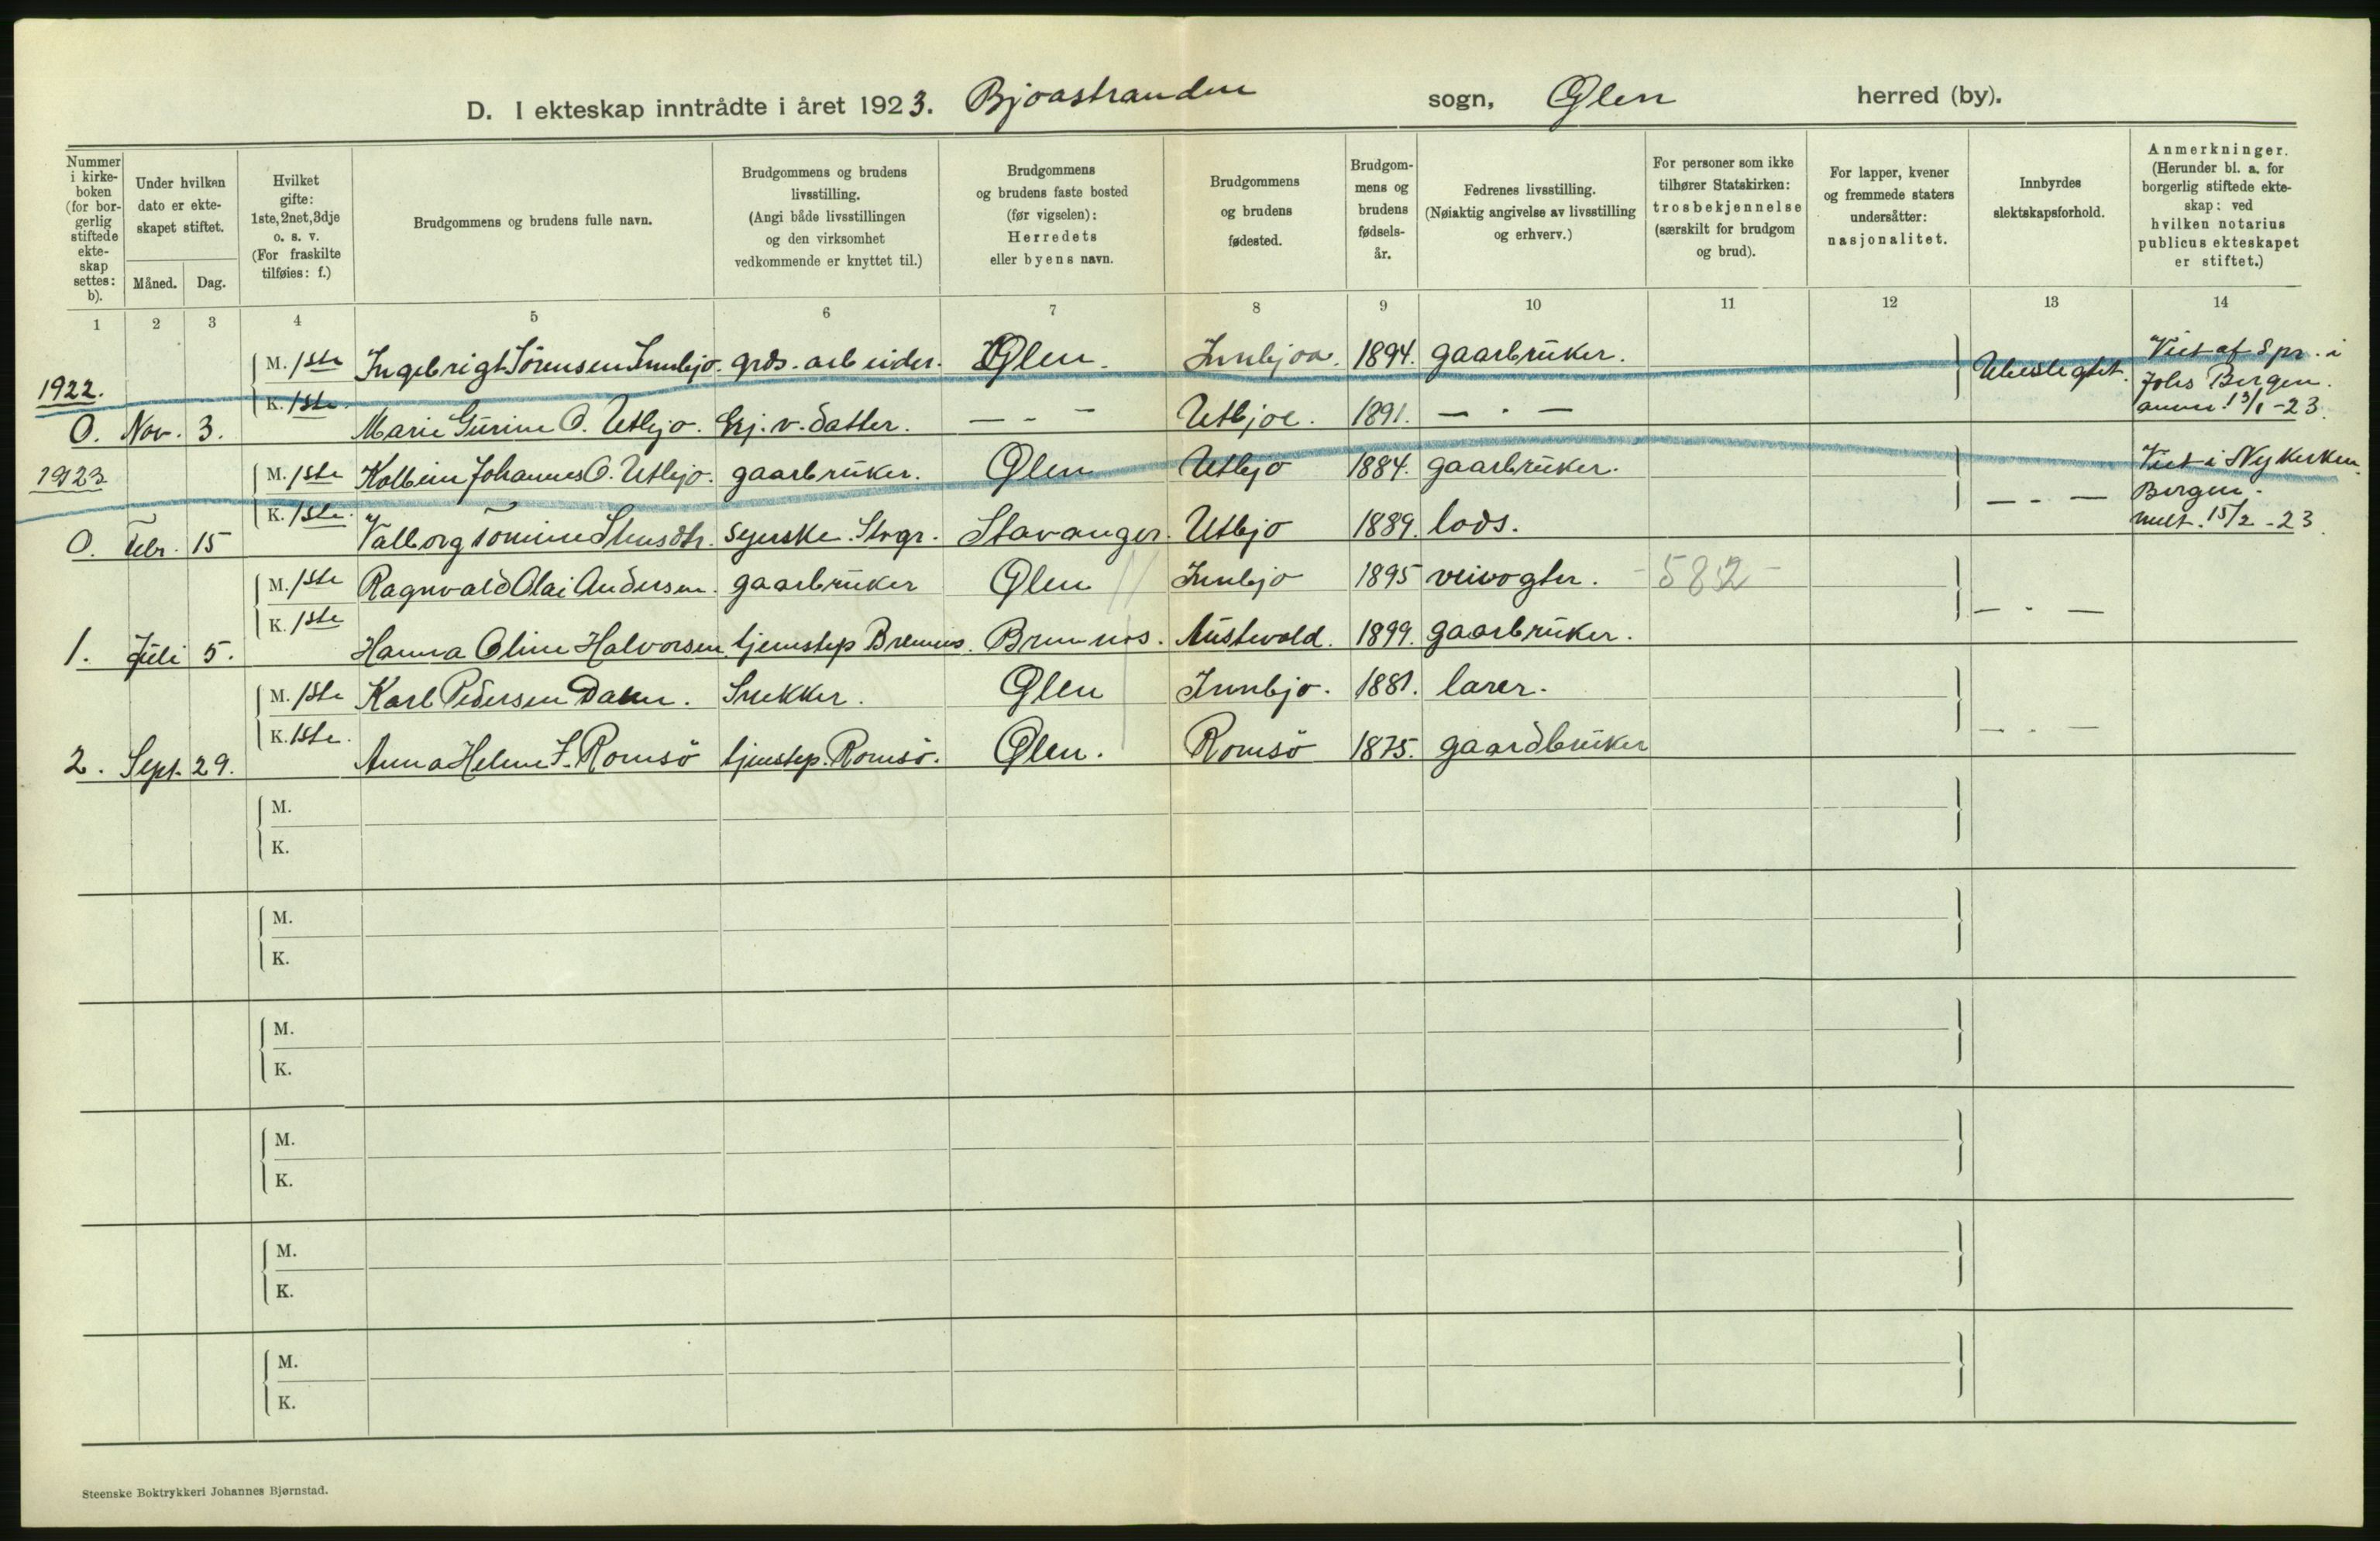 D. I ekteskap inntrådte i året 1923. Bjoastranden sogn, Ølen herred (by).
Nummer i kirkeboken (for borgerlig stiftede ekteskap settes: b).
Under hvilken dato er ekteskapet stiftet.
Måned. Dag.
Hvilket gifte: 1ste, 2net, 3dje o. s. v. (For fraskilte tilføies: f.)
Brudgommens og brudens fulle navn.
Brudgommens og brudens livsstilling. (Angi både livsstillingen og den virksomhet vedkommende er knyttet til.)
Brudgommens og brudens faste bosted (før vigselen): Herredets eller byens navn.
Brudgommens og brudens fødested.
Brudgommens og brudens fødselsår.
Fedrenes livsstilling. (Nøiaktig angivelse av livsstilling og erhverv.)
For personer som ikke tilhører Statskirken: trosbekjennelse (særskilt for brudgom og brud).
For lapper, kvener og fremmede staters undersåtter: nasjonalitet.
Innbyrdes slektskapsforhold.
Anmerkninger. (Herunder bl. a. for borgerlig stiftede ekteskap: ved hvilken notarius publicus ekteskapet er stiftet.)
1 2 3 4 5 6 7 8 9 10 11 12 13 14
M. 1ste Ingebrigt Sörensen Innbjo. grds. arbeider. Ølen. Innbjoa. 1894. gaarbrüker. Ubeslegtet. Viet af Spr. i
1922. Johs Bergen.
K. 1ste. anm. 13/1 -23.
O. Nov. 3. Marie Gurine O. Utbjo. hj. v. datter. — - — Utbjoe. 1891. — . —
1923 M. 1ste Kolbein Johannes O. Utbjo. gaarbrüker. Ølen Utbjo 1884. gaarbrüker. Viet i Nykirken
K. 1ste. — - — Bergen.
O. Febr. 15 Valborg Tomine Stensdtr. syerske. Stvgr. Stavanger. Utbjo 1889. lods. melt. 15/2 -23
M. 1ste Ragnvald Olai Andersen. gaarbrüker Ølen Innbjo 1895 veivogter. -582-
K. 1ste — . —
1. Juli 5. Hanna Oline Halvorsen. tjenestep Bremnes. Bremnes. Austevold. 1899. gaarbrüker.
M. 1ste Karl Pedersen Dalen. Snekker. Ølen Innbjo. 1881. lærer.
K. 1ste. — . —
2. Sept. 29. Anna Helene F. Romsö tjenstep. Romsö. Ølen. Romsö 1875. gaardbrüker
M.
K.
M.
K.
M.
K.
M.
K.
M.
K.
M.
K.
Steenske Boktrykkeri Johannes Bjørnstad.